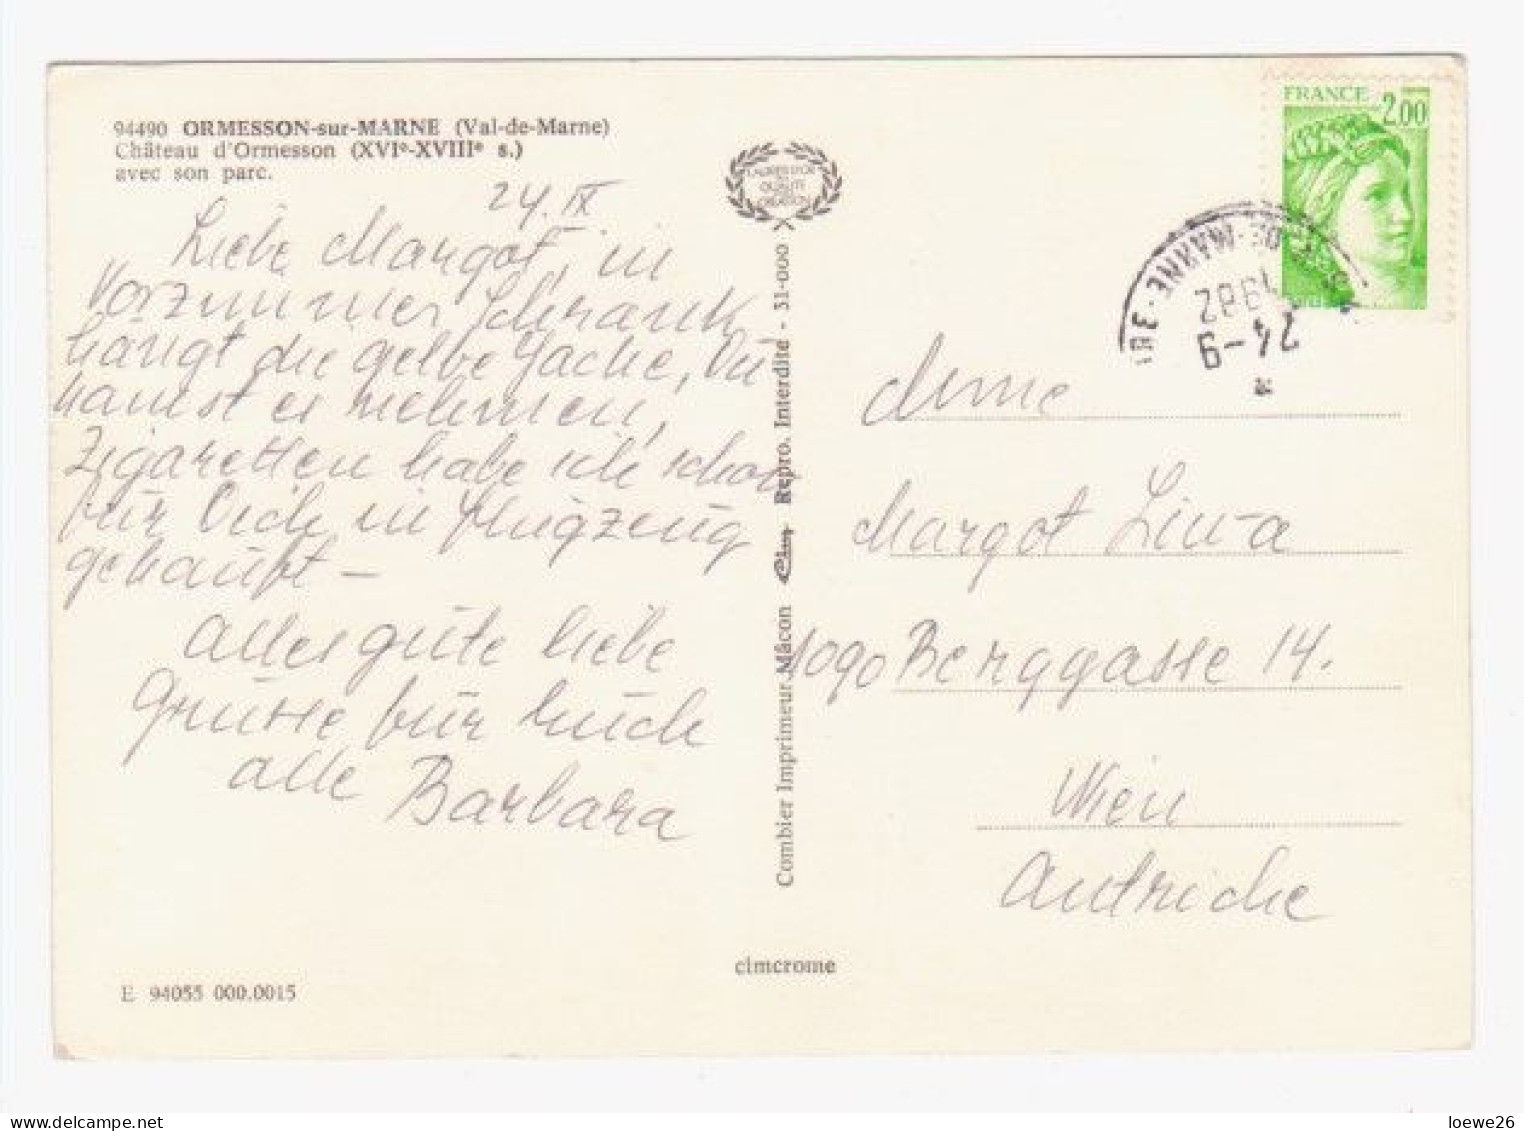 94490 ORMESSON-sur-MARNE (Val-de-Marne)
Château d'Ormesson (XVIe-XVIIIe s.)
avec son parc.
24. IX
Liebe Margot, in
Vorzimmer Schrank
hängt die gelbe Jacke, Du
kannst es nehmen,
Zigaretten habe ich schon
für Dich in Flugzeug
gekauft –
Alles gute liebe
Grüsse für Euch
alle Barbara
E 94055 000.0015
LAURIERS D'OR
QUALITÉ
CRÉATION
Combier Imprimeur Mâcon Cim Repro. Interdite - 31-000
cimcrome
FRANCE 2,00
DE-MARNE
1982
24-9
Mme
Margot
1090 Berggasse 14.
Wien
Autriche
loewe26